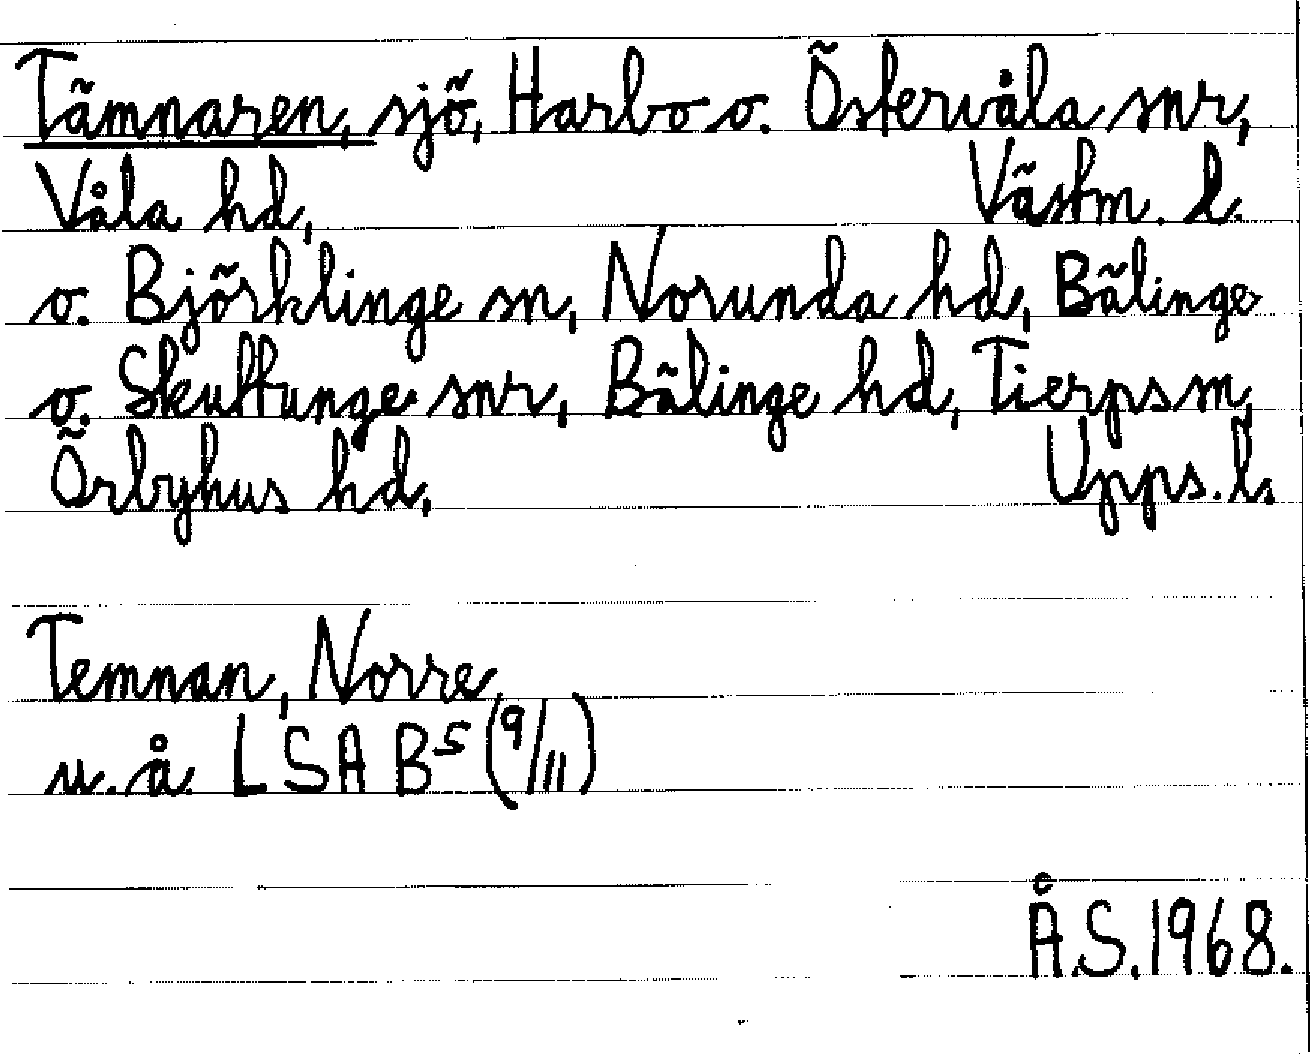 Tämnaren, sjö, Harbo o. Östervåla snr,
Våla hd, Västm. l.
o. Björklinge sn, Norunda hd, Bälinge
o. Skuttunge snr, Bälinge hd, Tierps sn,
Örbyhus hd, Upps. l.
Temnan, Norre
u. å. LSA B5 (9/11)
Å.S. 1968.